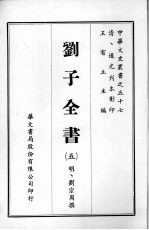 中華文史叢書之五十七
清、道光刊本影印
王有立主編
劉子全書
(五)
明、劉宗周撰
華文書局股份有限公司印行